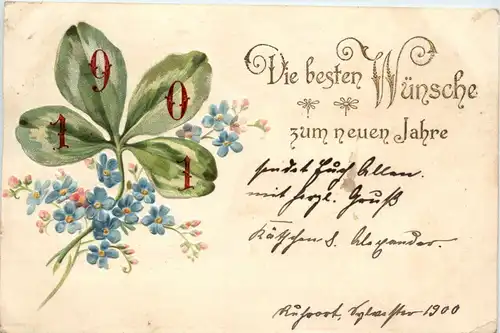 1901
Die besten Wünsche
zum neuen Jahre
sendet Euch Allen.
mit herzl. Gruß
Käthchen & Alexander.
Ruhrort, Sylvester 1900